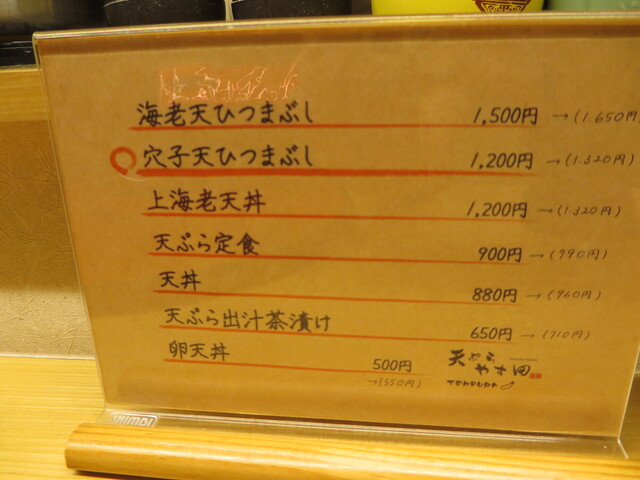 海老天ひつまぶし 1,500円 →(1.650円
穴子天ひつまぶし 1,200円 →(1.320円)
上海老天丼 1,200円 →(1.320円)
天ぷら定食 900円 →(990円)
天丼 880円 →(960円)
天ぷら出汁茶漬け 650円 →(710円)
卵天丼 500円
→(550円)
天ぷら
やす田
TEMPURA